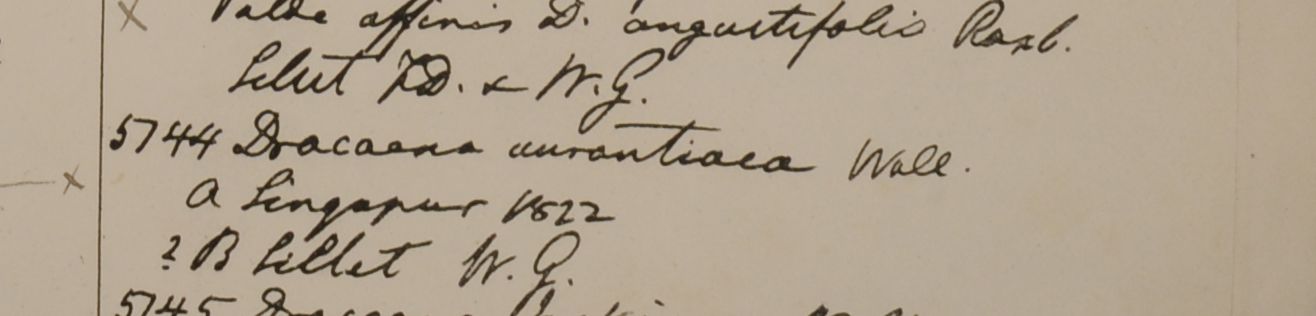 Valde affinis D. angustifolia Roxb.
Sillet F.D. & W.G.
5744 Dracaena aurantiaca Wall.
A Singapur 1822
? B Sillet W. G.
5745 Dracaena